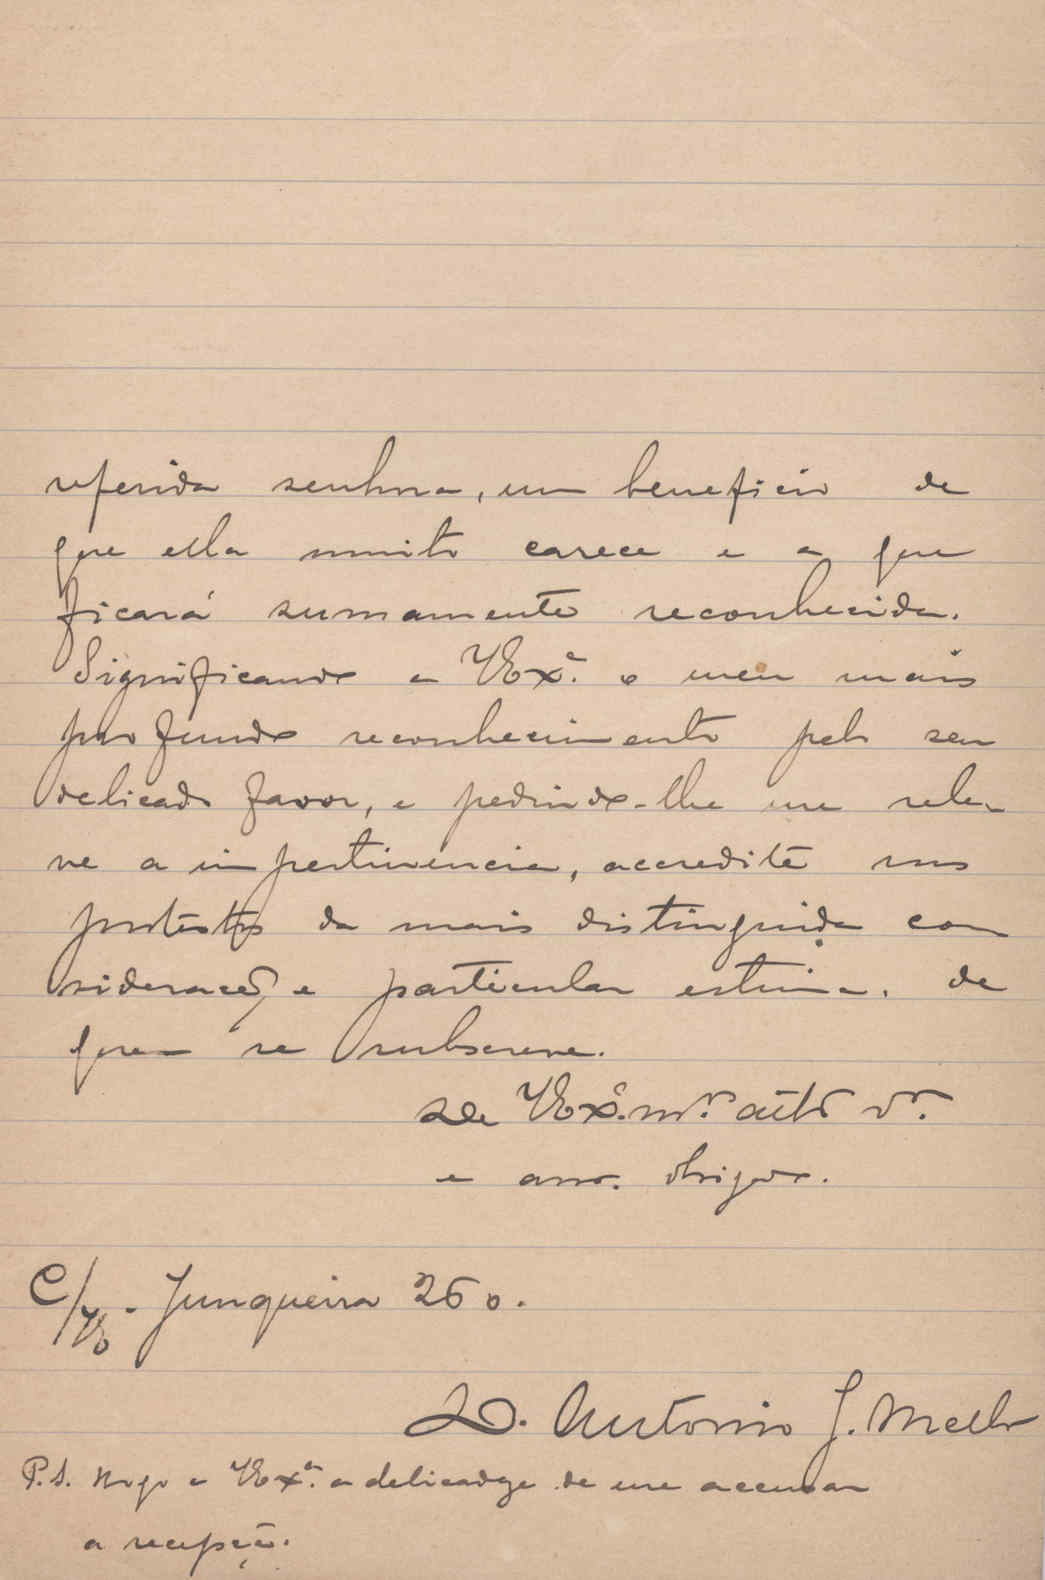 referida senhora, um beneficio de
que ella muito carece e a que
ficará sumamente reconhecida.
Significando a VExª. o meu mais
profundo reconhecimento pelo seu
delicado favor, e pedindo-lhe me rele-
ve a impertinencia, accredite nos
protestos da mais distinguida con
sideração e particular estima. de
quem se subscreve.
De VExª. mtº. attº vr.
e amo. obrigdo.
C/ - Junqueira 260.
D. Antonio J. Mello
P.S. Rogo a VExª. a delicadeza de me accusar
a recepção.